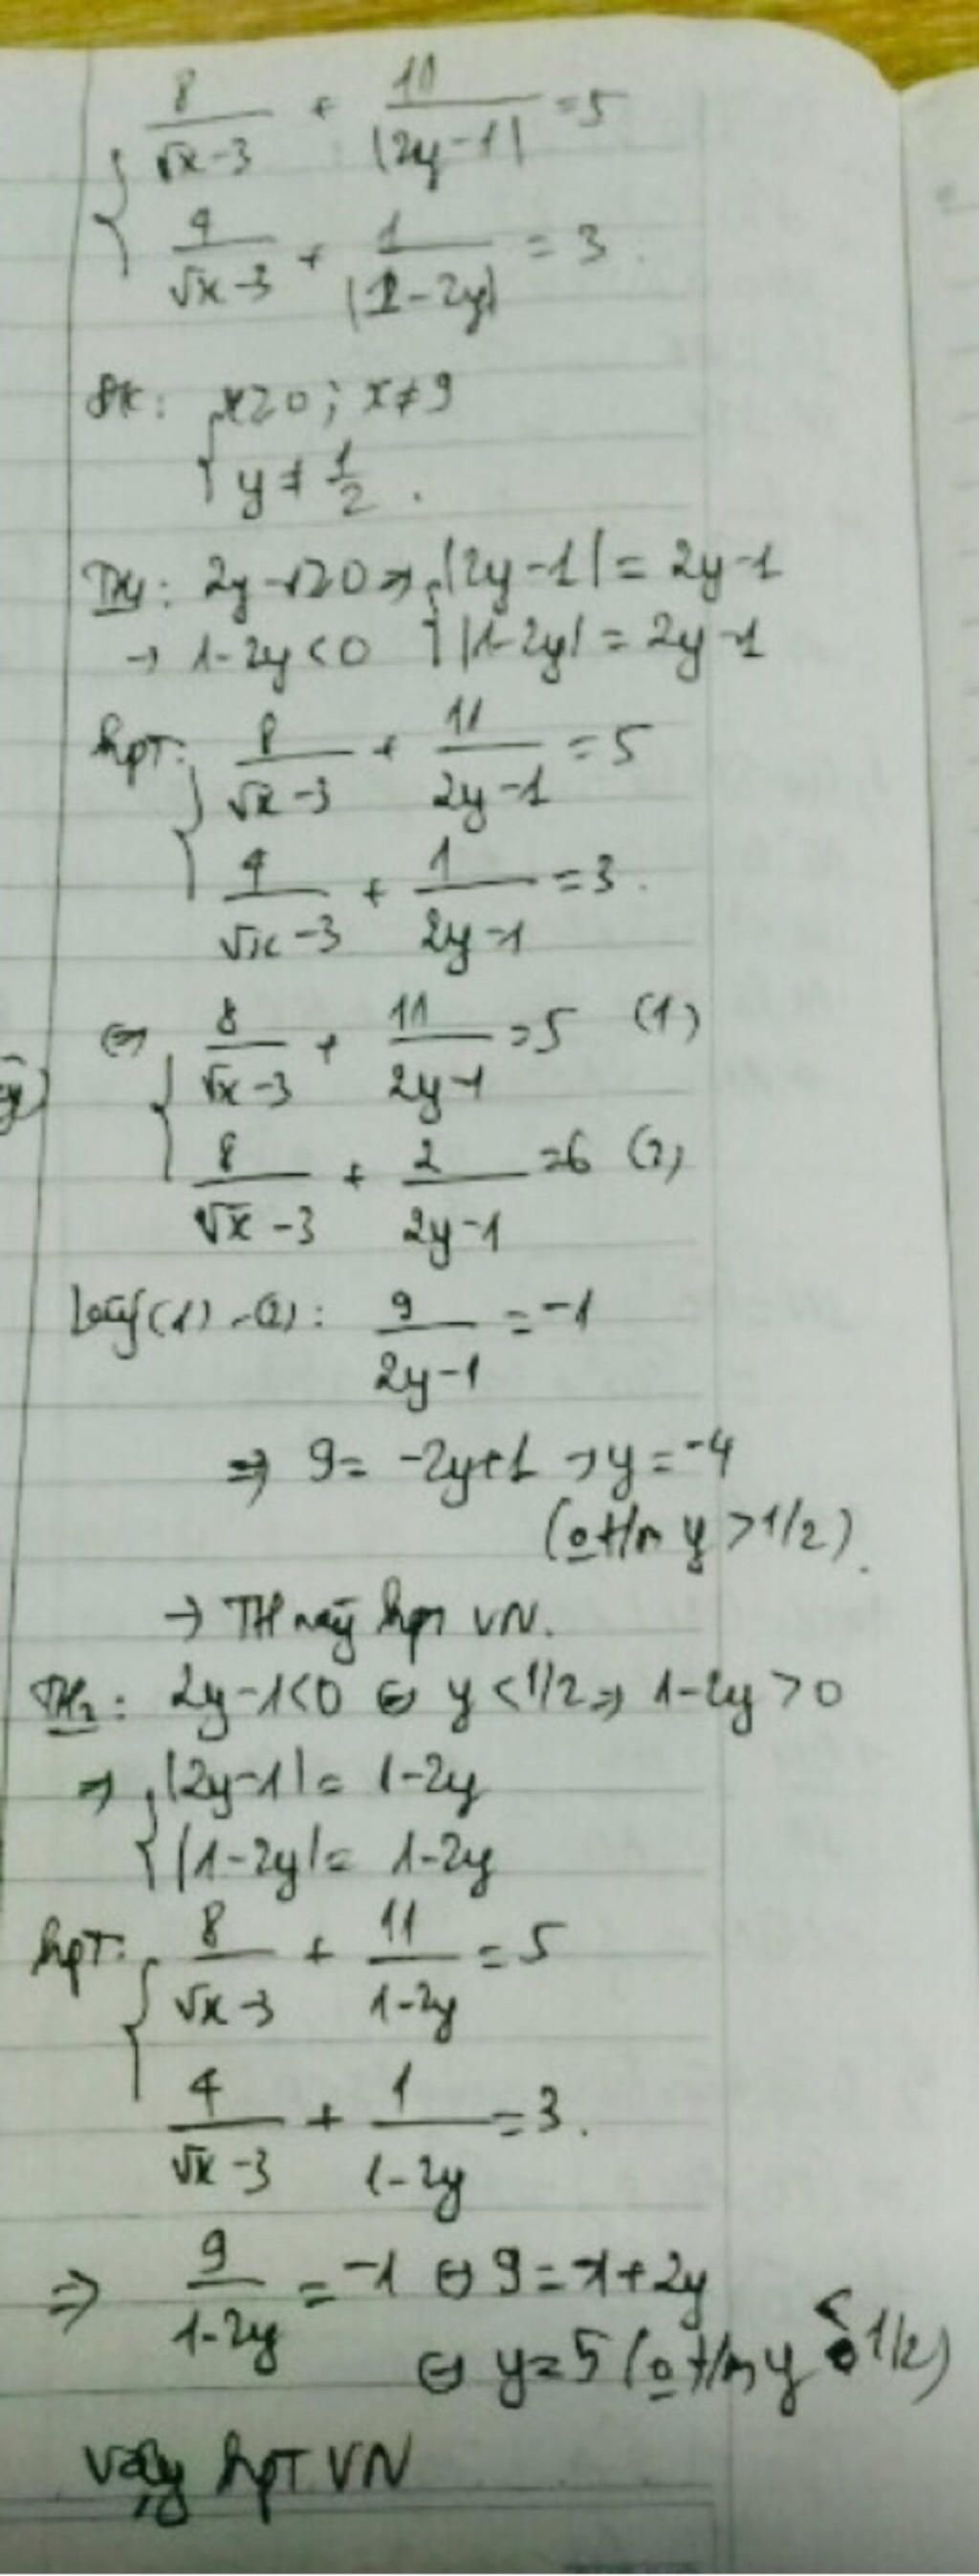 8/(√x-3) + 11/|2y-1| = 5
4/(√x-3) + 1/|1-2y| = 3.
ĐK: { x≥0; x≠9
y ≠ 1/2.
TH1: 2y-1≥0 => { |2y-1| = 2y-1
→ 1-2y<0 |1-2y| = 2y-1
hpT: { 8/(√x-3) + 11/(2y-1) = 5
4/(√x-3) + 1/(2y-1) = 3.
⇔ { 8/(√x-3) + 11/(2y-1) = 5 (1)
8/(√x-3) + 2/(2y-1) = 6 (2)
Lấy (1) - (2): 9/(2y-1) = -1
=> 9 = -2y+1 → y = -4
(o t/m y > 1/2).
→ TH này hpt VN.
TH2: 2y-1<0 ⇔ y < 1/2 => 1-2y > 0
=> { |2y-1| = 1-2y
|1-2y| = 1-2y
hpT: { 8/(√x-3) + 11/(1-2y) = 5
4/(√x-3) + 1/(1-2y) = 3.
=> 9/(1-2y) = -1 ⇔ 9 = -1+2y
⇔ y = 5 (o t/m y < 1/2)
Vậy hpT VN